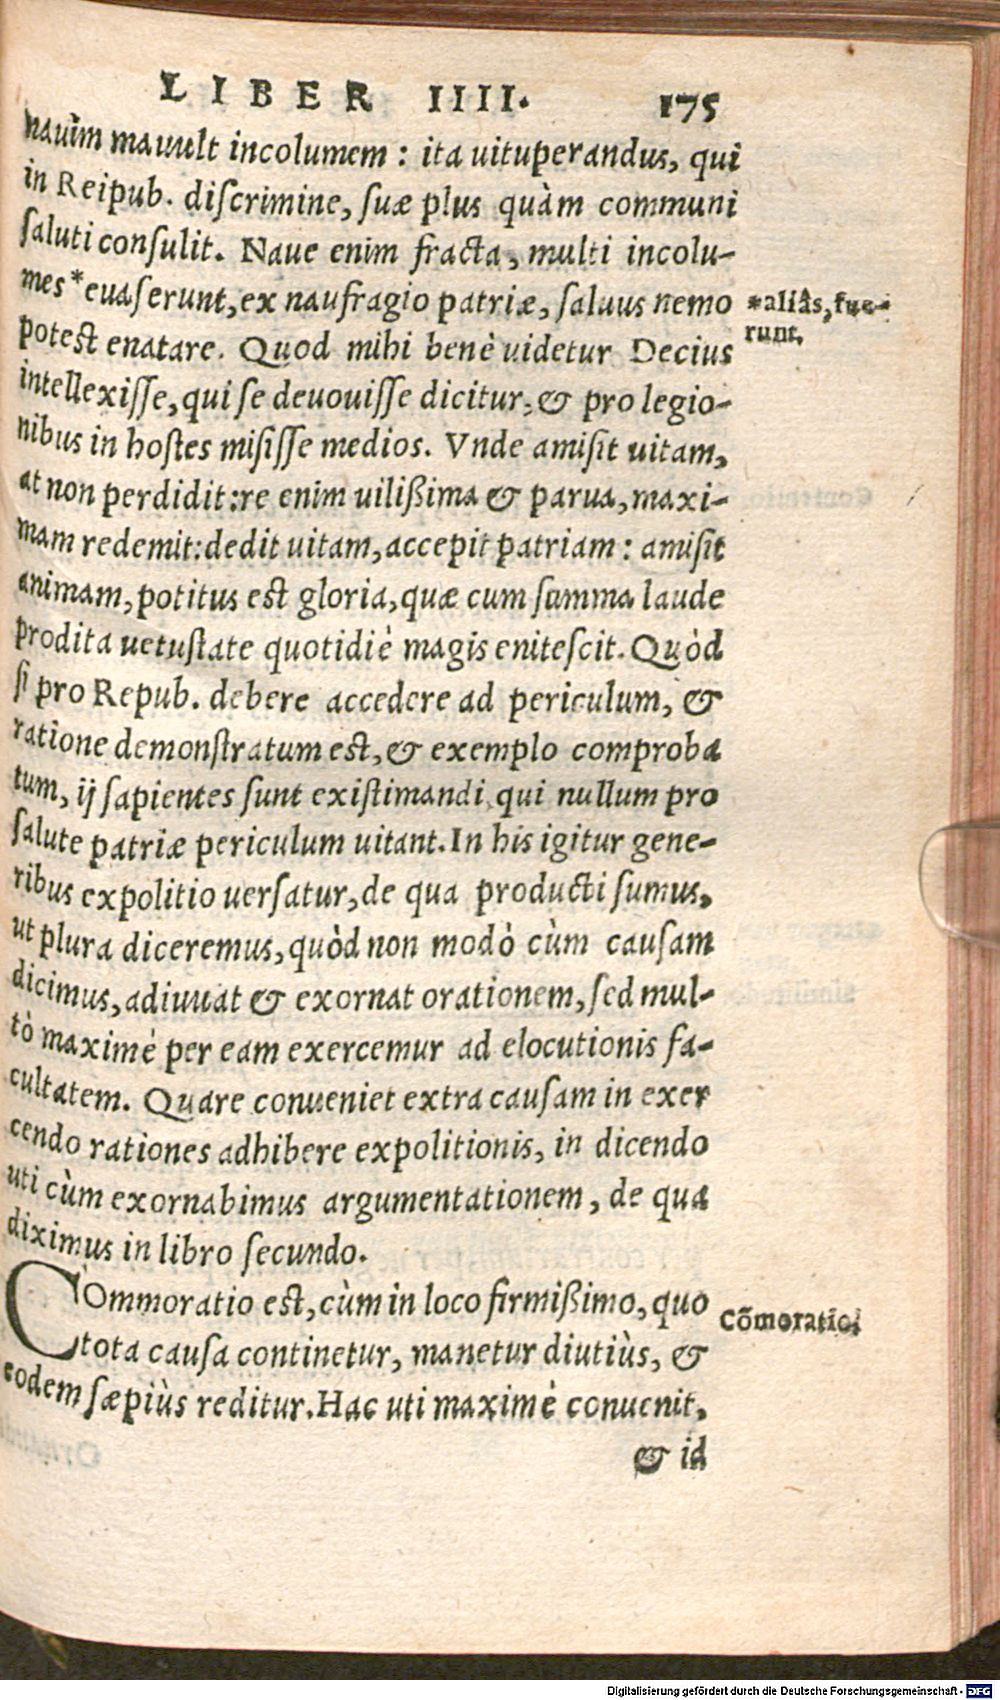 LIBER IIII. 175
nauim mauult incolumem : ita uituperandus, qui
in Reipub. discrimine, suæ plus quàm communi
saluti consulit. Naue enim fracta, multi incolu-
mes * euaserunt, ex naufragio patriæ, saluus nemo
*aliâs, fue-
runt.
potest enatare. Quod mihi benè uidetur Decius
intellexisse, qui se deuouisse dicitur, & pro legio-
nibus in hostes misisse medios. Vnde amisit uitam,
at non perdidit: re enim uilißima & parua, maxi-
mam redemit: dedit uitam, accepit patriam : amisit
animam, potitus est gloria, quæ cum summa laude
prodita uetustate quotidiè magis enitescit. Quòd
si pro Repub. debere accedere ad periculum, &
ratione demonstratum est, & exemplo comproba
tum, ij sapientes sunt existimandi, qui nullum pro
salute patriæ periculum uitant. In his igitur gene-
ribus expolitio uersatur, de qua producti sumus,
ut plura diceremus, quòd non modò cùm causam
dicimus, adiuuat & exornat orationem, sed mul-
tò maximè per eam exercemur ad elocutionis fa-
cultatem. Quare conueniet extra causam in exer
cendo rationes adhibere expolitionis, in dicendo
uti cùm exornabimus argumentationem, de qua
diximus in libro secundo.
COmmoratio est, cùm in loco firmißimo, quo
Cõmoratio.
tota causa continetur, manetur diutiùs, &
eodem sæpiùs reditur. Hac uti maximè conuenit,
& id
Digitalisierung gefördert durch die Deutsche Forschungsgemeinschaft - DFG